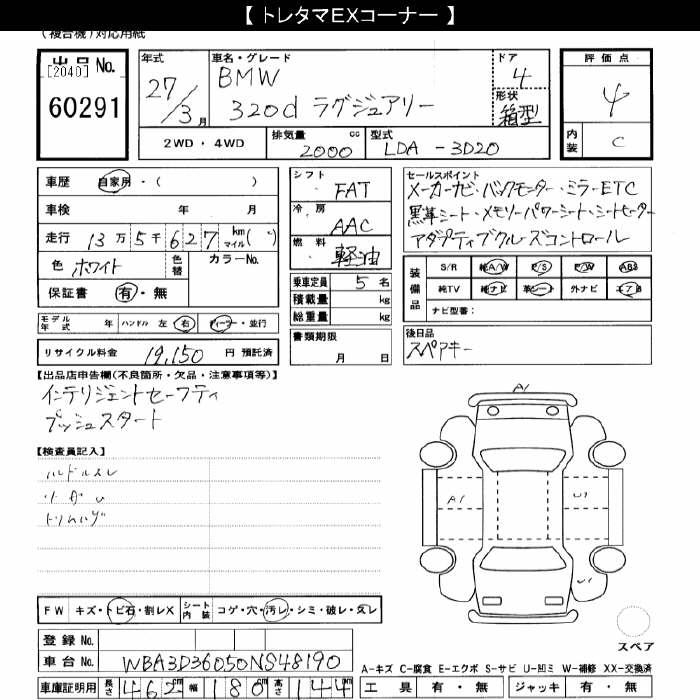 【 トレタマEXコーナー 】
(複合機)対応用紙
出品 No.
[2040]
60291
年式
27/3 月
車名・グレード
BMW
320d ラグジュアリー
ドア
4
形状
箱型
評価点
4
内装
C
2WD ・ 4WD
排気量
cc
2000
型式
LDA - 3D20
車歴 自家用・( )
車検 年 月
走行 13 万 5 千 6 2 7 kmマイル( )
色 ホワイト 色替 カラーNo.
保証書 有・無
シフト
FAT
冷房
AAC
燃料
軽油
乗車定員 5 名
積載量 kg
総重量 kg
セールスポイント
メーカーナビ・バックモニター・ミラーETC
黒革シート・メモリーパワーシート・シートヒーター
アダプティブクルーズコントロール
装備品
S/R 純A/W P/S P/W ABS
純TV 純ナビ 革シート 外ナビ エアB
ナビ型番:
モデル年式 年 ハンドル 左 右 ディーラー・並行
リサイクル料金 19,150 円 預託済
書類期限
月 日
後日品
スペアキー
【出品店申告欄(不良箇所・欠品・注意事項等)】
インテリジェントセーフティ
プッシュスタート
【検査員記入】
ハンドルスレ
トリムハゲ
A1
A1
U1
U1
スペア
FW キズ・トビ石・割レX シート内装 コゲ・穴・汚レ・シミ・破レ・スレ
登録 No.
車台 No. WBA3D36050NS48190
車庫証明用 長さ 462 cm 幅 180 cm 高さ 144 cm
A-キズ C-腐食 E-エクボ S-サビ U-凹ミ W-補修 XX-交換済
工具 有・無 ジャッキ 有・無